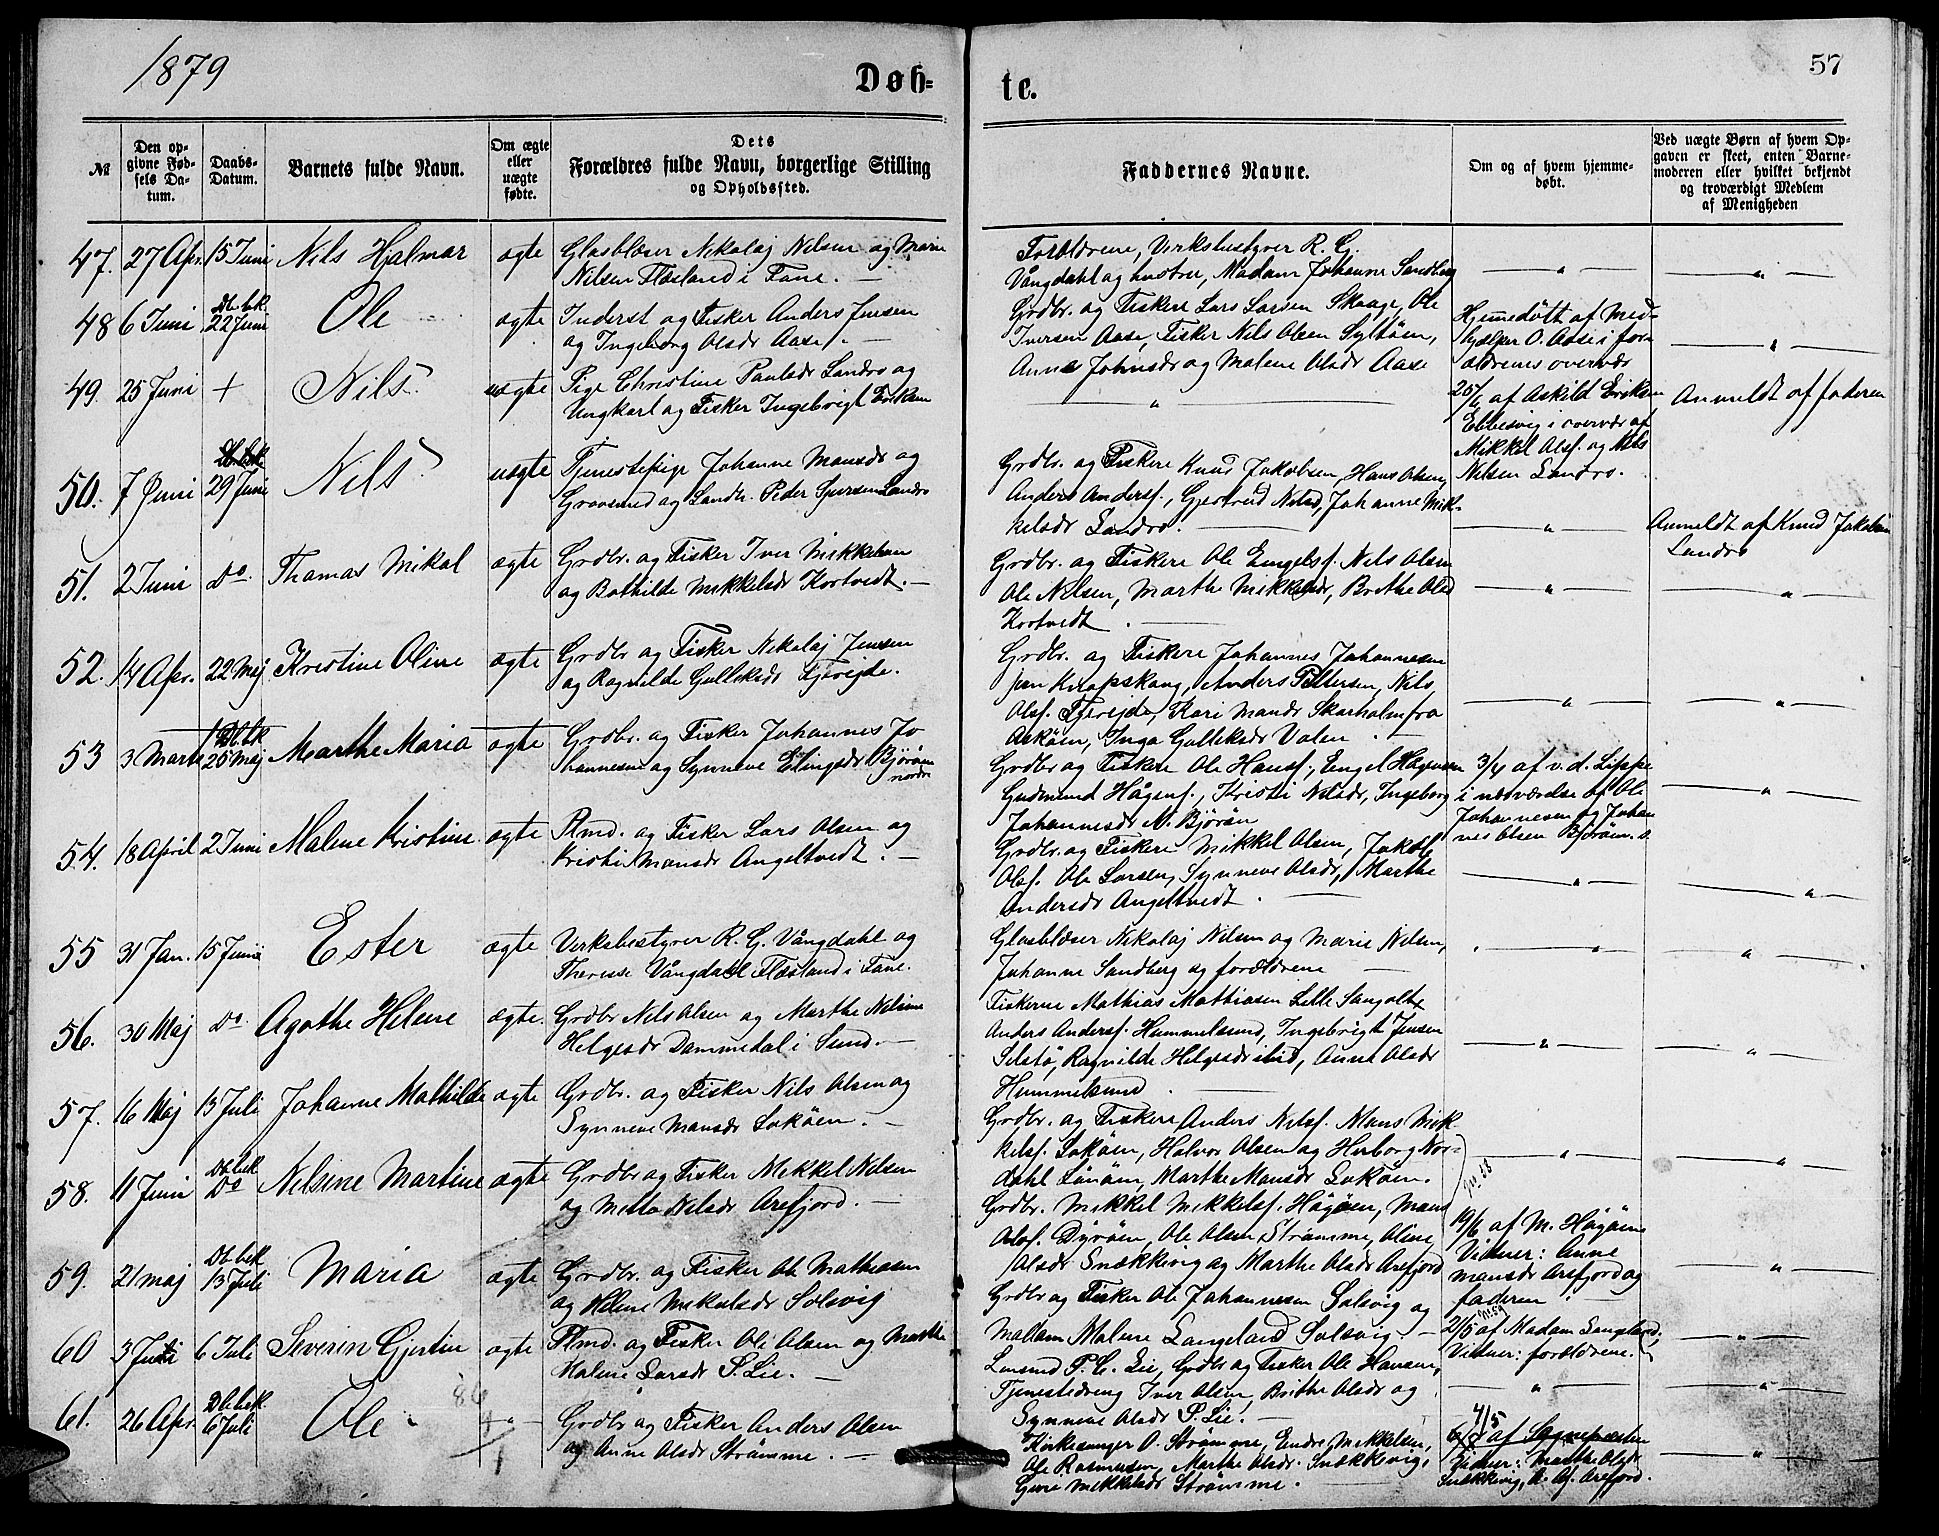 1879
Døb=
te.
57
№
Den opgivne Fødsels Datum.
Daabs-Datum.
Barnets fulde Navn.
Om ægte eller uægte fødte.
Dets Forældres fulde Navn, borgerlige Stilling og Opholdssted.
Faddernes Navne.
Om og af hvem hjemmedøbt.
Ved uægte Børn af hvem Opgaven er skeet, enten Barnemoderen eller hvilket bekjendt og troværdigt Medlem af Menigheden
47. 27 Apr. 15 Juni Nils Hjalmar ægte Glasblæser Nikolaj Nilsen og Marie
Nilsen Flæsland i Fane. —
Forældrene, Verksbestyrer R. G.
Vångdahl og hustru, Madam Johanne Sandberg
— " — — " —
48 6 Juni Db. bek. 22 Juni Ole ægte Inderst og Fisker Anders Jensen
og Ingeborg Olsdr Aase. —
Grdbr. og Fiskere Lars Larsen Skaage, Ole
Iversen Aase, Fisker Nils Olsen Syltöen,
Anna Johnsdr og Malene Olsdr Aase
Hjemmedöbt af Med-
hjælper O. Aase i for-
ældrenes overvær
— " —
49. 25 Juni + Nils uægte Pige Christine Paulsdr Landro og
Ungkarl og Fisker Ingebrigt Eriksen
— " —
25/6 af Askild Eriksen
Ebbesvig i overvær af
Mikkel Olsf. og Nils
Nilsen Landro.
Anmeldt af faderen
50. 7 Juni Db. bek. 29 Juni Nils uægte Tjenestepige Johanne Mansdr og
Grovsmed og Landh. Peder Sjursen Landro
Grdbr. og Fiskere Knud Jakobsen, Hans Olsen,
Anders Andersf., Gjertrud Nilsd, Johanne Mik-
kelsdr Landro. —
— " —
Anmeldt af Knud Jakobsen
Landro
51. 2 Juni Do. Thomas Mikal ægte Grdbr. og Fisker Iver Mikkelsen
og Bothilde Mikkelsdr Kortvedt. —
Grdbr. og Fiskere Ole Engelsf. Nils Olsen
Ole Nilsen, Marthe Mikkelsdr, Brithe Olsd
Kortvedt. —
— " — — " —
52. 14 Apr. 22 Maj Kristine Oline ægte Grdbr og Fisker Nikolaj Jensen
og Ragnilde Gulleksdr Tjereide.
Grdbr. og Fiskere Johannes Johannesen
jun Knapskaug, Anders Pettersen, Nils
Olsf. Tjereide, Kari Mansdr Skarholm fra
Askøen, Inga Gulleksdr Valen. —
— " — — " —
53 3 Marts Db. bek 25 Maj Marthe Maria ægte Grdbr. og Fisker Johannes Jo
hannesen og Synneve Elingsdr Björöen
nordre
Grdbr og Fiskere Ole Hansf., Engel Hågensen
Gudmund Hågenf., Kristi Nilsdr, Ingeborg
Johannesdr N. Björöen
3/4 af v. d. Lippe
i nærværelse af Ole
Johannesen og Johan
nes Olsen Björöen. n.
— " —
54. 18 April 2 Juni Malene Kristine ægte Plmd. og Fisker Lars Olsen og
Kristi Mansdr Angeltvedt. —
Grdbr. og Fiskere Mikkel Olsen, Jakob
Olsf. Ole Larsen, Synneve Olsdr, Marthe
Andersdr Angeltvedt. —
— " — — " —
55 31 Jan. 15 Juni Ester ægte Verksbestyrer R. G. Vångdahl og
Therese Vångdahl Flæsland i Fane.
Glasblæser Nikolaj Nilsen og Marie Nilsen,
Johanne Sandberg og forældrene —
— " — — " —
56. 30 Maj Do Agathe Helene ægte. Grdbr Nils Olsen og Marthe Nelsine
Helgesdr Dammedal i Sund. —
Fiskerne Mathias Mathiasen Lille Sangolt,
Anders Andersf. Hummelsund, Ingebrigt Jensen
Telstø, Ragnilde Helgesdr ibid, Anna Olsdr
Hummelsund —
— " — — " —
57. 16 Maj 13 Juli Johanne Mathilde ægte Grdbr. og Fisker Nils Olsen og
Synneve Mansdr Lokøen. —
Grdbr. og Fiskere Anders Nilsf. Mans Mik-
kelsf. Lokøen, Halvor Olsen og Herborg Nor-
dahl Lönöen, Marthe Mansdr Lokøen.
— " — — " —
58. 11 Juni Db. bek Do Nelsine Martine ægte Grdbr og Fisker Mikkel Nilsen
og Metta Nilsdr Arefjord. —
Grdbr. Mikkel Mikkelsf. Hågöen, Mans
Olsf. Dyröen, Ole Olsen Strömme, Oline
Olsdr Snækkevig og Marthe Olsdr Arefjord
No. 58
19/6 af M. Hågöen
Vidner: Anne
Mansdr Arefjord og
faderen
— " —
59. 21 maj Db. bek 13 Juli Maria ægte Grdbr. og Fisker Ole Mathiasen
og Helene Mikalsdr Solsvig
Grdbr og Fisker Ole Johannesen Solsvig og
Madam Malene Langeland Solsvig. —
No. 59
21/5 af Madam Langeland,
Vidner: forældrene.
— " —
60 3 Juli 6 Juli Severin Gjertin ægte Plmd. og Fisker Ole Olsen og Marthe
Malene Larsdr P. Lie. —
Lensmd P. C. Lie, Grdbr og Fisker Ole Hansen,
Tjenestedreng Iver Olsen, Brithe Olsdr og
Synneve Olsdr P. Lie. —
— " — — " —
61. 26 Apr. Db. bek. 6 Juli Ole — " — Grdbr og Fisker Anders Olsen
og Anne Olsdr Strömme. —
Kirkesanger O. Strömme, Endre Mikkelsen,
Ole Rasmussen, Marthe Olsdr. Snækkevig,
Guro Mikkelsdr Strömme. —
4/5 af Sognepræsten
Vidner: Marthe Olsdr
Snækkevig, A. Of. Arefjord.
— " —